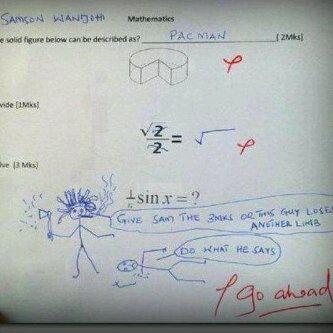 SAMSON WANJOHI
Mathematics
e solid figure below can be described as? PACMAN [2Mks]
vide [1Mks]
√2/2 = √
lve [3 Mks]
1/n sin x = ?
GIVE SAM THE 3MKS OR THIS GUY LOSES
ANOTHER LIMB
DO WHAT HE SAYS
go ahead